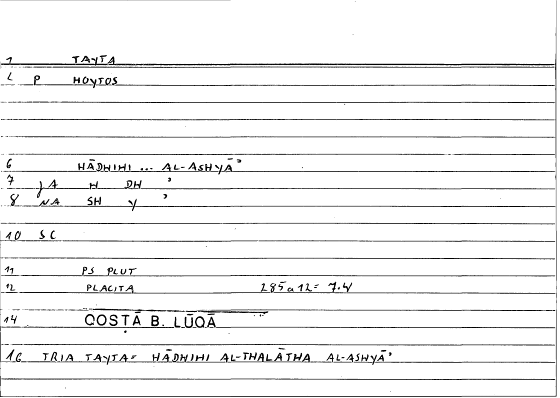 1 TAYTA
L P HOYTOS
6 HĀDHIHI ... AL-ASHYĀʾ
7 JA H DH ʾ
8 NA SH Y ʾ
10 SC
11 PS PLUT
12 PLACITA 285a12= 7.4
14 QOSṬĀ B. LŪQĀ
16 TRIA TAYTA= HĀDHIHI AL-THALĀTHA AL-ASHYĀʾ